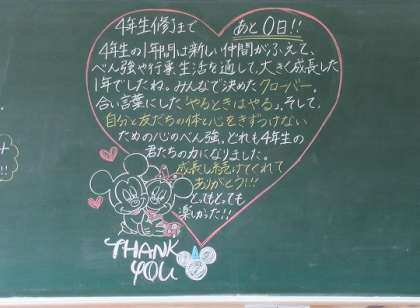 4年生修了まで あと0日!!
4年生の1年間は新しい仲間がふえて、
べん強や行事、生活を通して、大きく成長した
1年でしたね。みんなで決めたクローバー。
合い言葉にした「やるときはやる」。そして、
自分と友だちの体と心をきずつけない
ための心のべん強。どれも4年生の
君たちの力になりました。
成長し続けてくれて
ありがとう!!!
とってもとっても
楽しかった!!
THANK
YOU